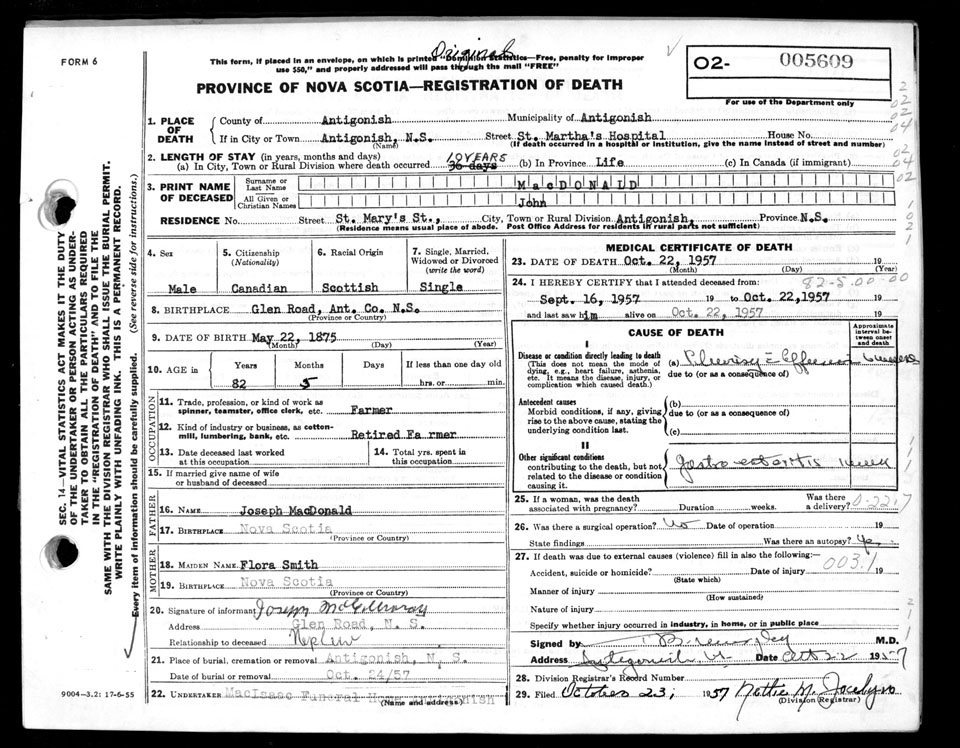 FORM 6
Original
This form, if placed in an envelope, on which is printed "Dominion Statistics—Free, penalty for improper
use $50," and properly addressed will pass through the mail "FREE"
O2- 005609
For use of the Department only
PROVINCE OF NOVA SCOTIA—REGISTRATION OF DEATH
1. PLACE OF DEATH
County of Antigonish Municipality of Antigonish
If in City or Town Antigonish, N.S. Street St. Martha's Hospital House No.
(Name) (If death occurred in a hospital or institution, give the name instead of street and number)
2. LENGTH OF STAY (in years, months and days)
(a) In City, Town or Rural Division where death occurred 10 YEARS 36 days (b) In Province Life (c) In Canada (if immigrant)
3. PRINT NAME OF DECEASED
Surname or Last Name MacDONALD
All Given or Christian Names John
RESIDENCE No. Street St. Mary's St., City, Town or Rural Division Antigonish, Province N.S.
(Residence means usual place of abode. Post Office Address for residents in rural parts not sufficient)
4. Sex Male
5. Citizenship (Nationality) Canadian
6. Racial Origin Scottish
7. Single, Married, Widowed or Divorced (write the word) Single
8. BIRTHPLACE Glen Road, Ant. Co. N.S.
(Province or Country)
9. DATE OF BIRTH May 22, 1875
(Month) (Day) (Year)
10. AGE in Years Months Days If less than one day old
82 5 hrs. or min.
OCCUPATION
11. Trade, profession, or kind of work as
spinner, teamster, office clerk, etc. Farmer
12. Kind of industry or business, as cotton-
mill, lumbering, bank, etc. Retired Fa rmer
13. Date deceased last worked
at this occupation
14. Total yrs. spent in
this occupation
15. If married give name of wife
or husband of deceased
FATHER
16. NAME Joseph MacDonald
17. BIRTHPLACE Nova Scotia
(Province or Country)
MOTHER
18. MAIDEN NAME Flora Smith
19. BIRTHPLACE Nova Scotia
(Province or Country)
20. Signature of informant Joseph McGillivray
Address Glen Road, N. S.
Relationship to deceased Nephew
21. Place of burial, cremation or removal Antigonish, N. S.
Date of burial or removal Oct. 24/57
22. UNDERTAKER MacIsaac Funeral Home Antigonish
(Name and address)
MEDICAL CERTIFICATE OF DEATH
23. DATE OF DEATH Oct. 22, 1957 19
(Month) (Day) (Year)
24. I HEREBY CERTIFY that I attended deceased from:
82-5.00-00
Sept. 16, 1957 19 to Oct. 22,1957 19
and last saw him alive on Oct. 22, 1957 19
CAUSE OF DEATH
Approximate interval between onset and death
I
Disease or condition directly leading to death
(This does not mean the mode of
dying, e.g., heart failure, asthenia,
etc. It means the disease, injury, or
complication which caused death.)
(a) Pleurisy c Effusion 6 weeks
due to (or as a consequence of)
Antecedent causes
Morbid conditions, if any, giving
rise to the above cause, stating the
underlying condition last.
(b)
due to (or as a consequence of)
(c)
II
Other significant conditions
contributing to the death, but not
related to the disease or condition
causing it.
1 week
25. If a woman, was the death
associated with pregnancy? Duration weeks. Was there a delivery?
26. Was there a surgical operation? No Date of operation 19
State findings Was there an autopsy?
27. If death was due to external causes (violence) fill in also the following:
003.1
Accident, suicide or homicide? Date of injury 19
(State which)
Manner of injury
(How sustained)
Nature of injury
Specify whether injury occurred in industry, in home, or in public place
Signed by M.D.
Address Antigonish Date Oct 22 1957
28. Division Registrar's Record Number
29. Filed October 23, 1957
(Division Registrar)
SEC. 14—VITAL STATISTICS ACT MAKES IT THE DUTY
OF THE UNDERTAKER OR PERSON ACTING AS UNDER-
TAKER TO OBTAIN ALL THE PARTICULARS REQUIRED
IN THE "REGISTRATION OF DEATH" AND TO FILE THE
SAME WITH THE DIVISION REGISTRAR WHO SHALL ISSUE THE BURIAL PERMIT.
WRITE PLAINLY WITH UNFADING INK. THIS IS A PERMANENT RECORD.
Every item of information should be carefully supplied. (See reverse side for instructions.)
9004—3.2: 17-6-55